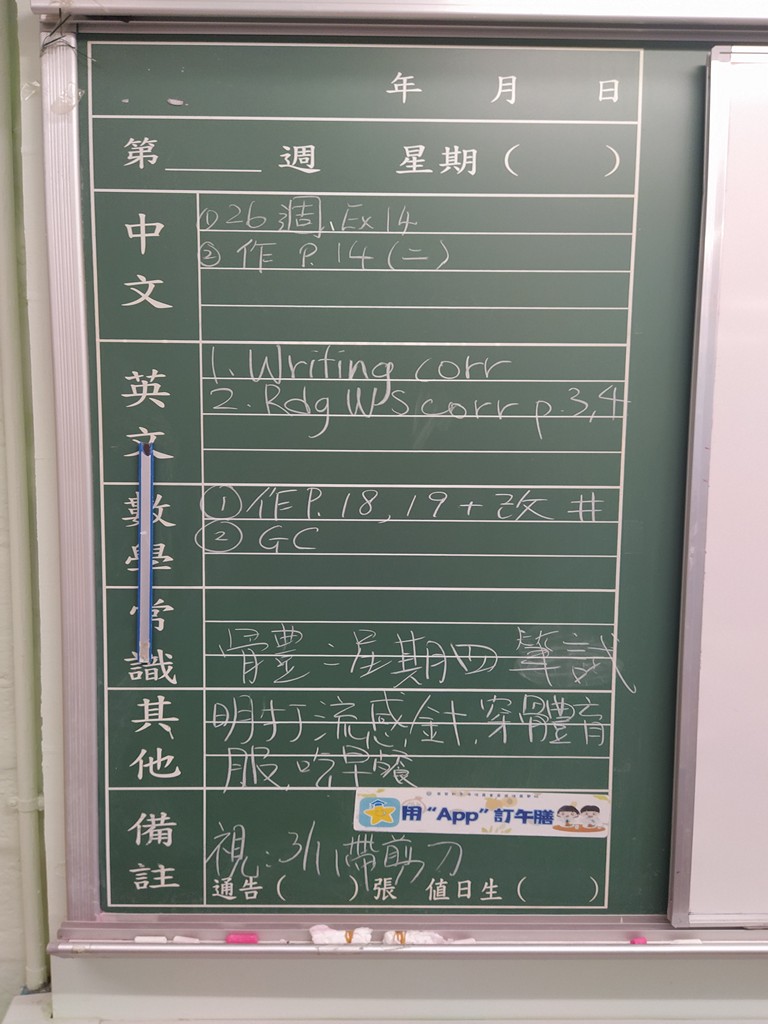 年 月 日
第 週 星期( )
中文
① 26週, Ex 14
② 作 P. 14 (二)
英文
1. Writing corr
2. Rdg WS corr p.3,4
數學
① 作 P. 18, 19 + 改 #
② GC
常識
體:星期四 筆試
其他
明打流感針,穿體育
服,吃早餐
備註
用 “App” 訂午膳
視:3/11,帶剪刀
通告( )張 值日生( )